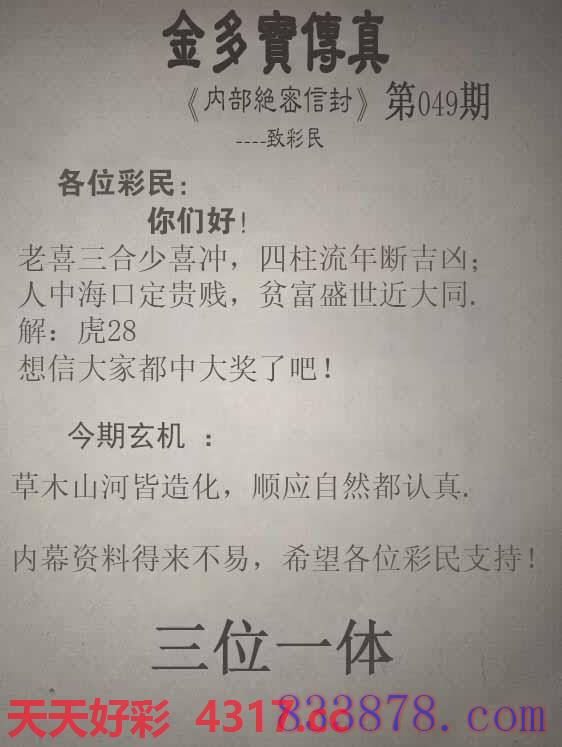 金多寶傳真
《内部絕密信封》第049期
----致彩民
各位彩民:
你们好!
老喜三合少喜冲，四柱流年断吉凶;
人中海口定贵贱，贫富盛世近大同.
解：虎28
想信大家都中大奖了吧!
今期玄机 ：
草木山河皆造化，顺应自然都认真.
内幕资料得来不易，希望各位彩民支持!
三位一体
天天好彩 4317.cc
833878.com